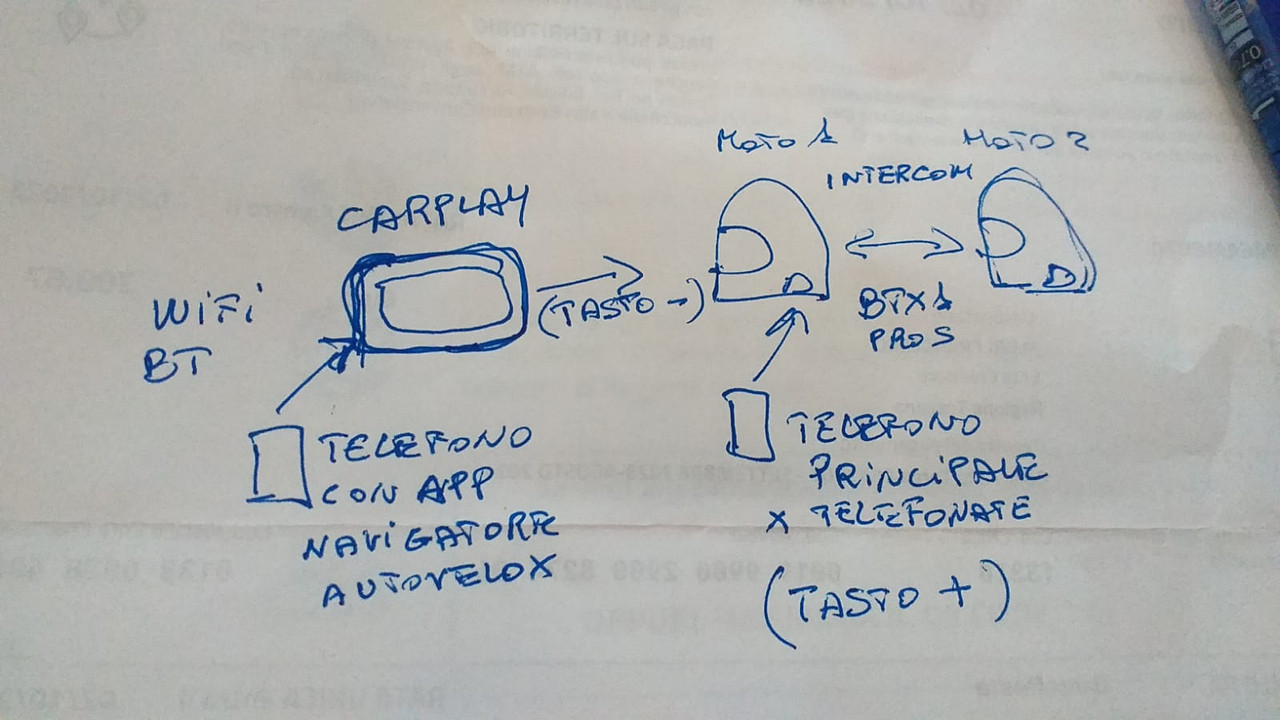 MOTO 1
MOTO 2
INTERCOM
CARPLAY
(TASTO -)
BTX1
PRO S
WiFi
BT
TELEFONO
CON APP
NAViGATORE
AUTOVELOX
TELEFONO
PRiNCiPALE
x TELEFONATE
(TASTO +)